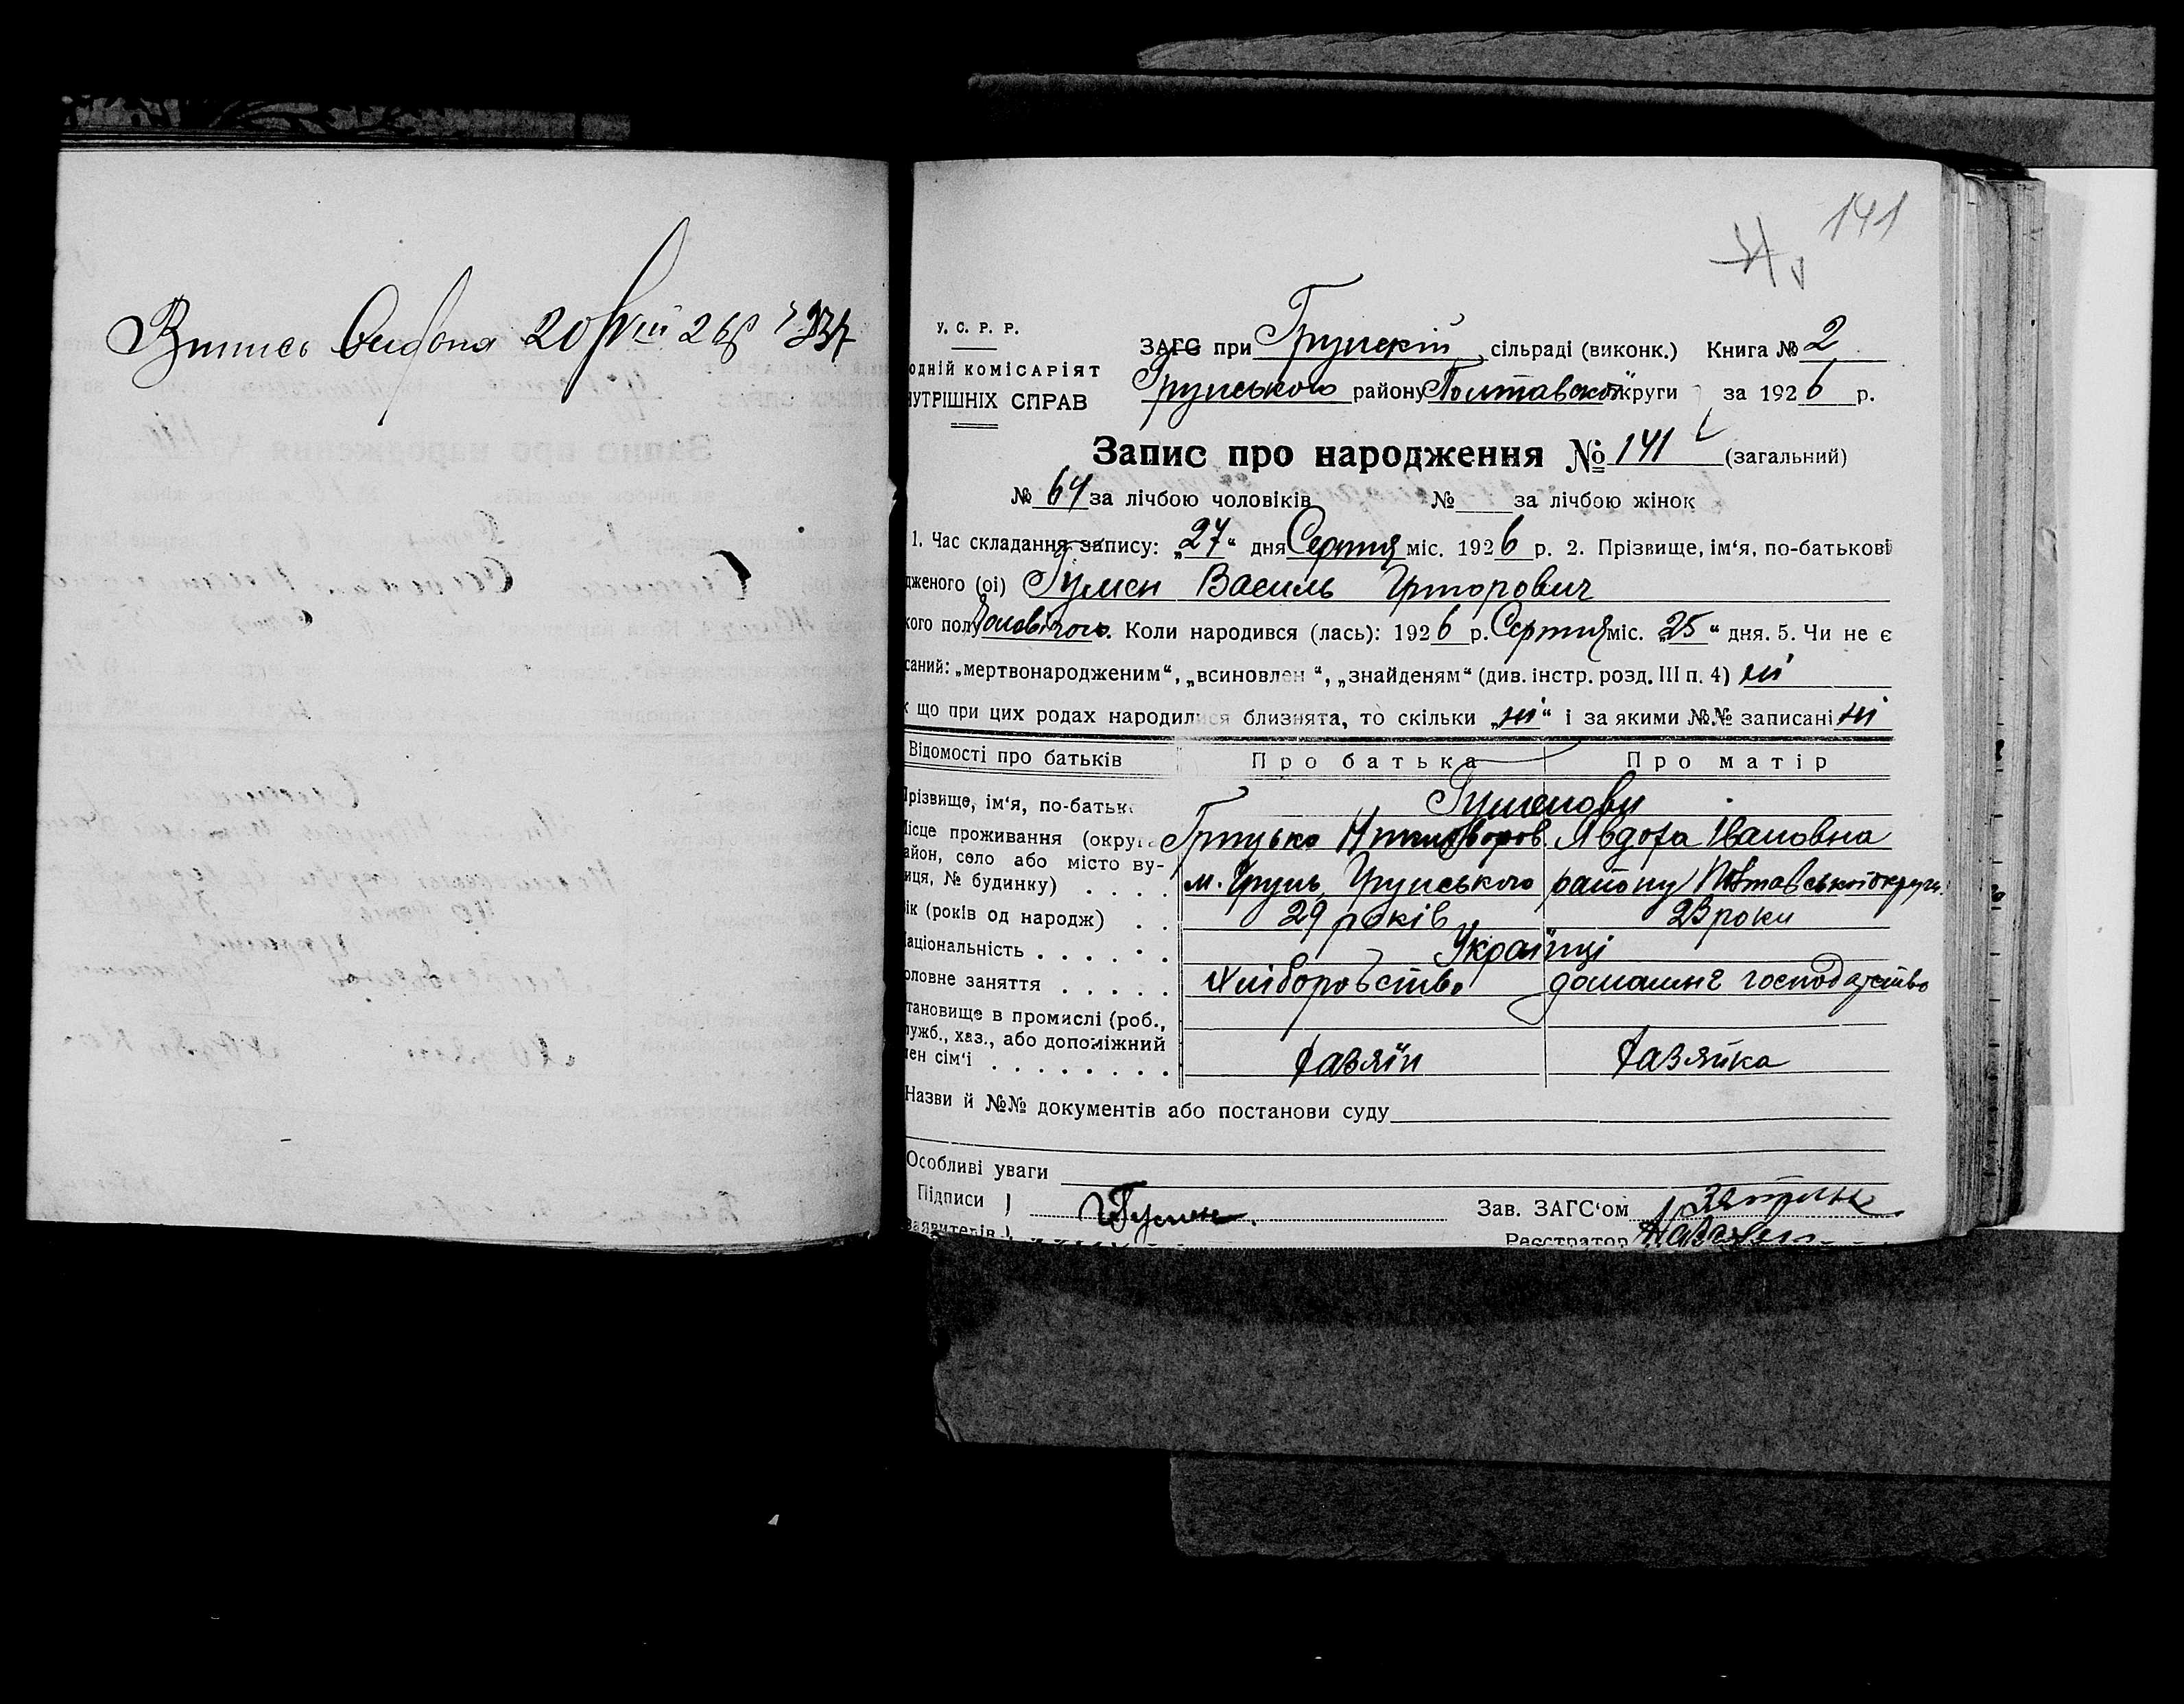 Випись Видана 20/VIII 26 р
141
У. С. Р. Р.
одній комісаріят
нутрішніх справ
ЗАГС при Грунскій сільраді (виконк.) Книга № 2
Грунського району Полтавської округи за 1926 р.
Запис про народження № 141 (загальний)
№ 64 за лічбою чоловіків № за лічбою жінок
1. Час складання запису: „27“ дня Серпня міс. 1926 р. 2. Прізвище, ім‘я, по-батькові
дженого (ої) Гумен Василь
кого полу Чоловічого. Коли народився (лась): 1926 р. Серпня міс. „25“ дня. 5. Чи не є
саний: „мертвонародженим“, „всиновлен “, „знайденям“ (див. інстр. розд. III п. 4) ні
к що при цих родах народилися близнята, то скільки „ні“ і за якими №№ записані ні
Відомості про батьків Про батька Про матір
Прізвище, ім‘я, по-батьк Гуменови
Місце проживання (округа Грицько Явдоха Івановна
айон, село або місто ву-
иця, № будинку) . . . . м. Грунь Грунського району Полтавської округи
Вік (років од народж) . . 29 років 23 роки
аціональність . . . . . . Українці
оловне заняття . . . . . Хліборобство домашнє господарство
тановище в промислі (роб.,
ужб., хаз., або допоміжний
ен сім‘ї . . . . . . . . Хазяїн Хазяйка
Назви й №№ документів або постанови суду
Особливі уваги
Підписи ) Гумен Зав. ЗАГС‘ом
заявителів ) Реєстратор